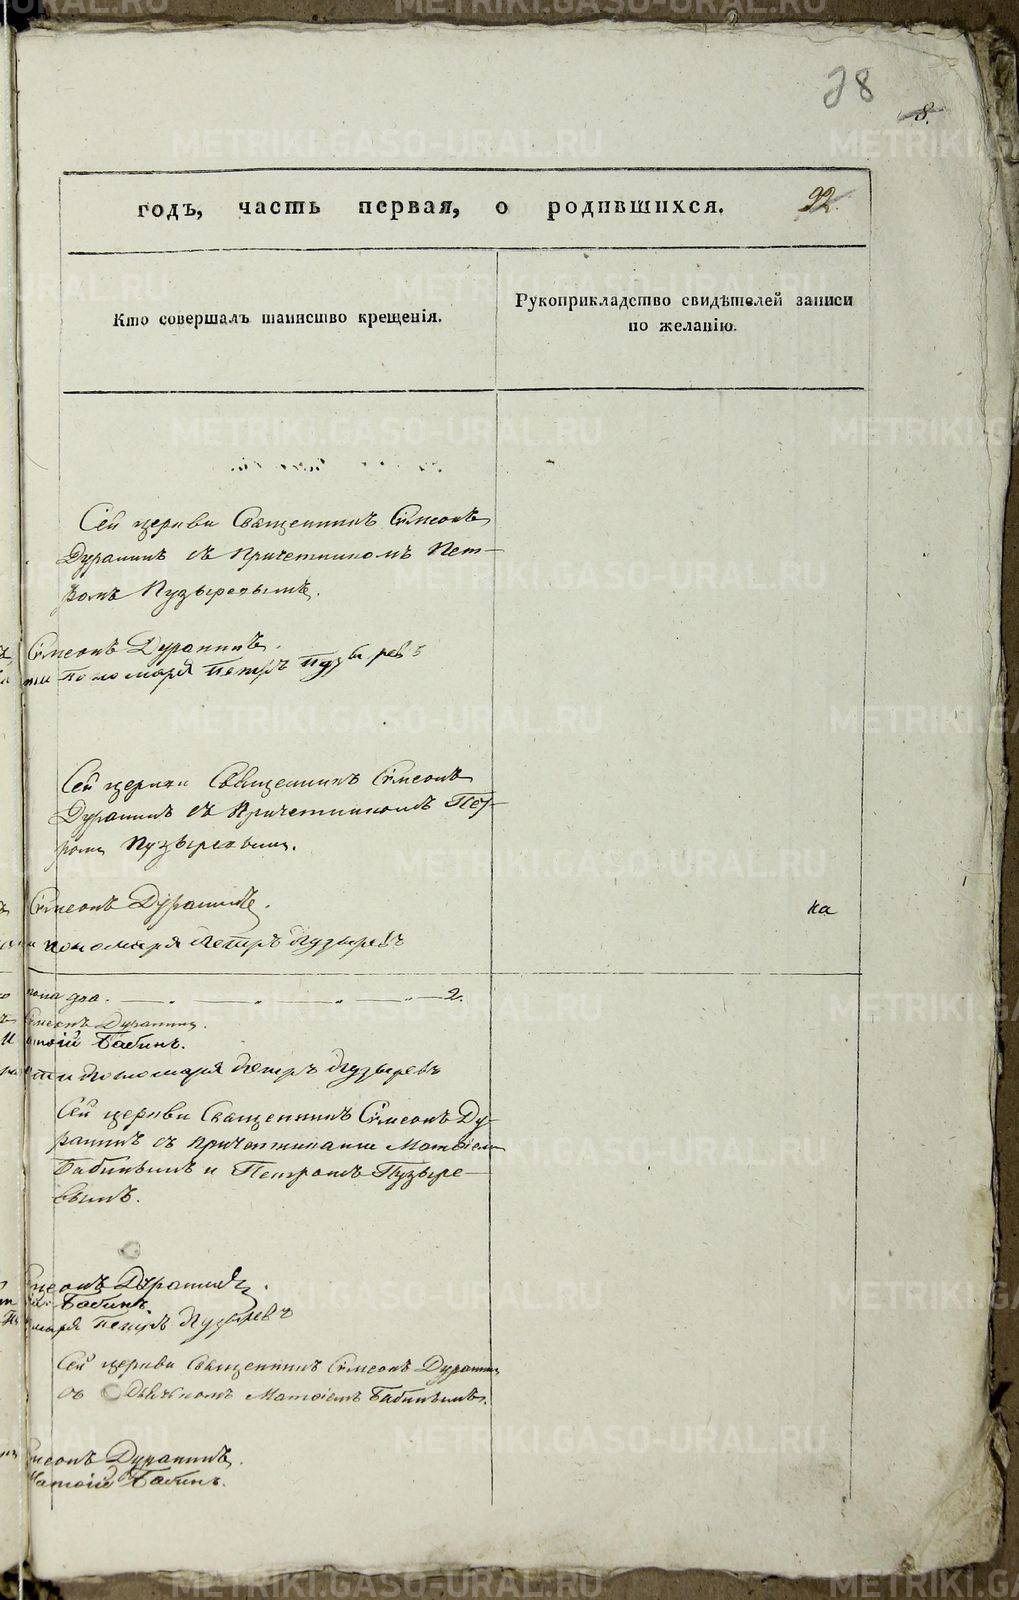 28
8.
годъ, часть первая, о родившихся.
22.
Кто совершалъ таинство крещенія.
Рукоприкладство свидѣтелей записи
по желанію.
Сей церкви Священникъ Сѵмеонъ
Дуранинъ съ Причетникомъ Пет-
ромъ Пузыревымъ.
Сѵмеонъ Дуранинъ.
Пономаря Петръ Пузыревъ
Сей церкви Священникъ Сѵмеонъ
Дуранинъ съ Причетникомъ Пет-
ромъ Пузыревымъ.
Сѵмеонъ Дуранинъ.
на
пономаря Петръ Пузыревъ
пола два. 2.
Сѵмеонъ Дуранинъ.
Бабинъ.
Пономаря Петръ Пузыревъ
Сей церкви Священникъ Сѵмеонъ Ду-
ранинъ съ причетниками Матѳіемъ
Бабинымъ и Петромъ Пузыре-
вымъ.
Сѵмеонъ Дуранинъ.
Бабинъ.
Петръ Пузыревъ
Сей церкви Священникъ Сѵмеонъ Дуранинъ
съ Дьячкомъ Матѳіемъ Бабинымъ.
Сѵмеонъ Дуранинъ.
Матѳій Бабинъ.
METRIKI.GASO-URAL.RU